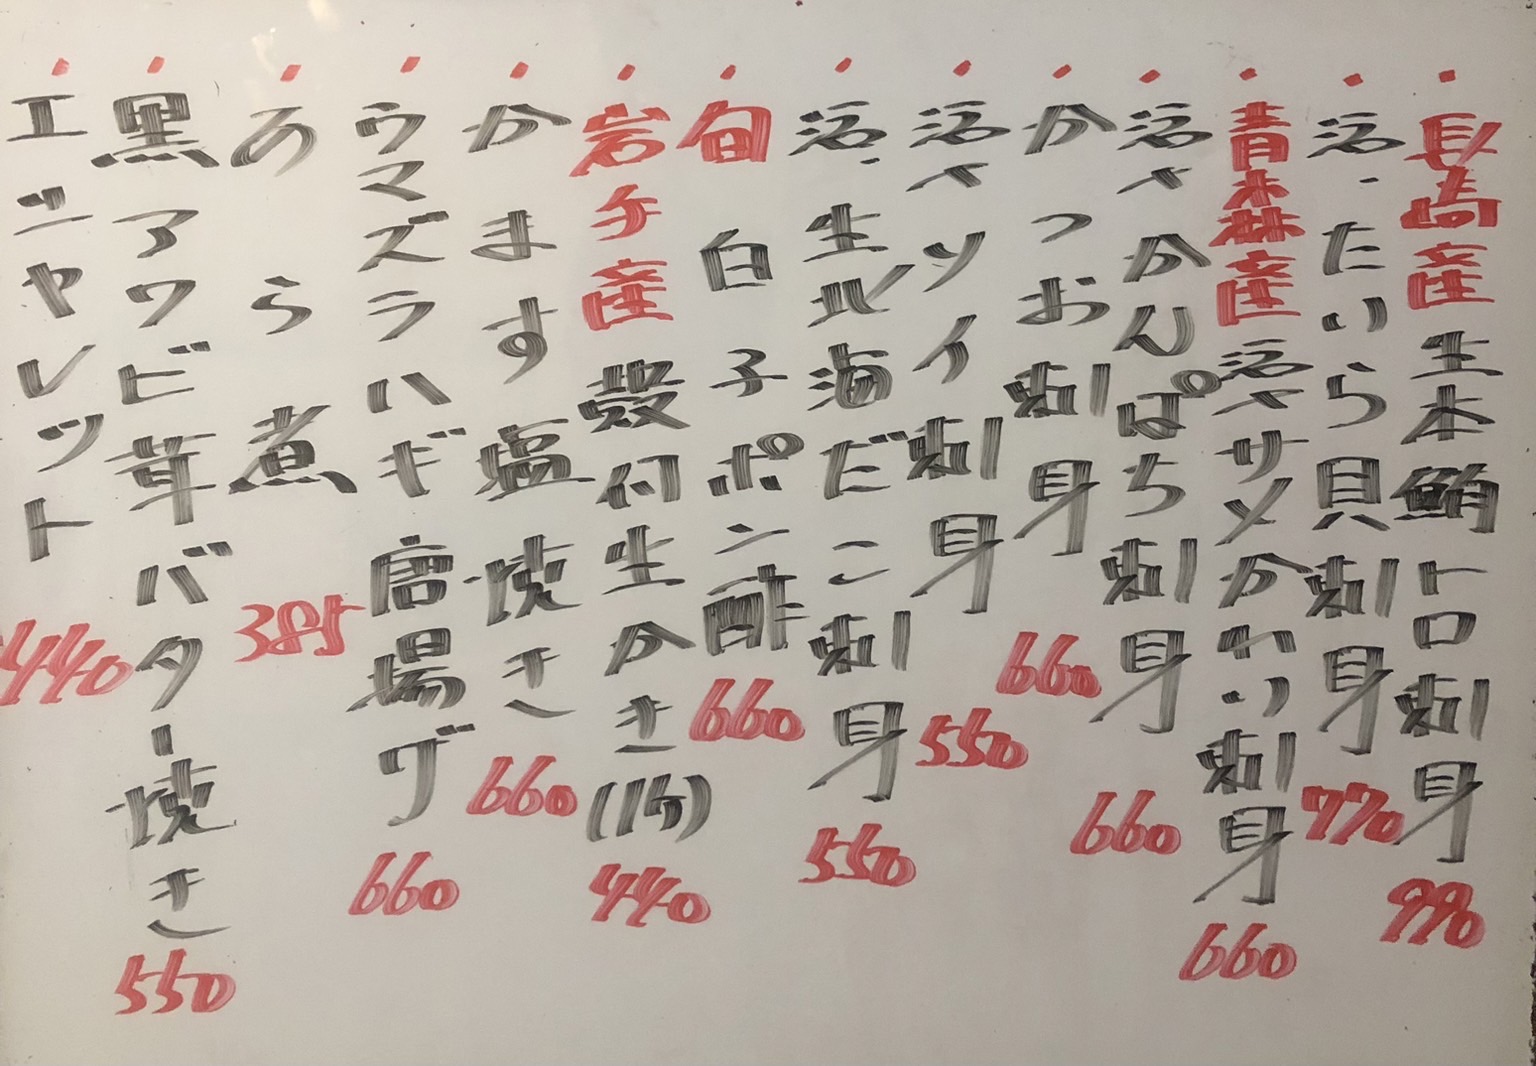 ・長崎産生本鮪トロ刺身 990
・活・たいら貝刺身 770
・青森産活〆サメかれい刺身 660
・活〆かんぱち刺身 660
・かつお刺身 660
・活〆ソイ刺身 550
・活・生北海だこ刺身 550
・旬白子ポン酢 660
・岩手産殻付生かき(1ケ) 440
・かます塩焼き 660
・ウマズラハギ唐揚げ 660
・あら煮 385
・黒アワビ茸バター焼き 550
・エシャレット 440